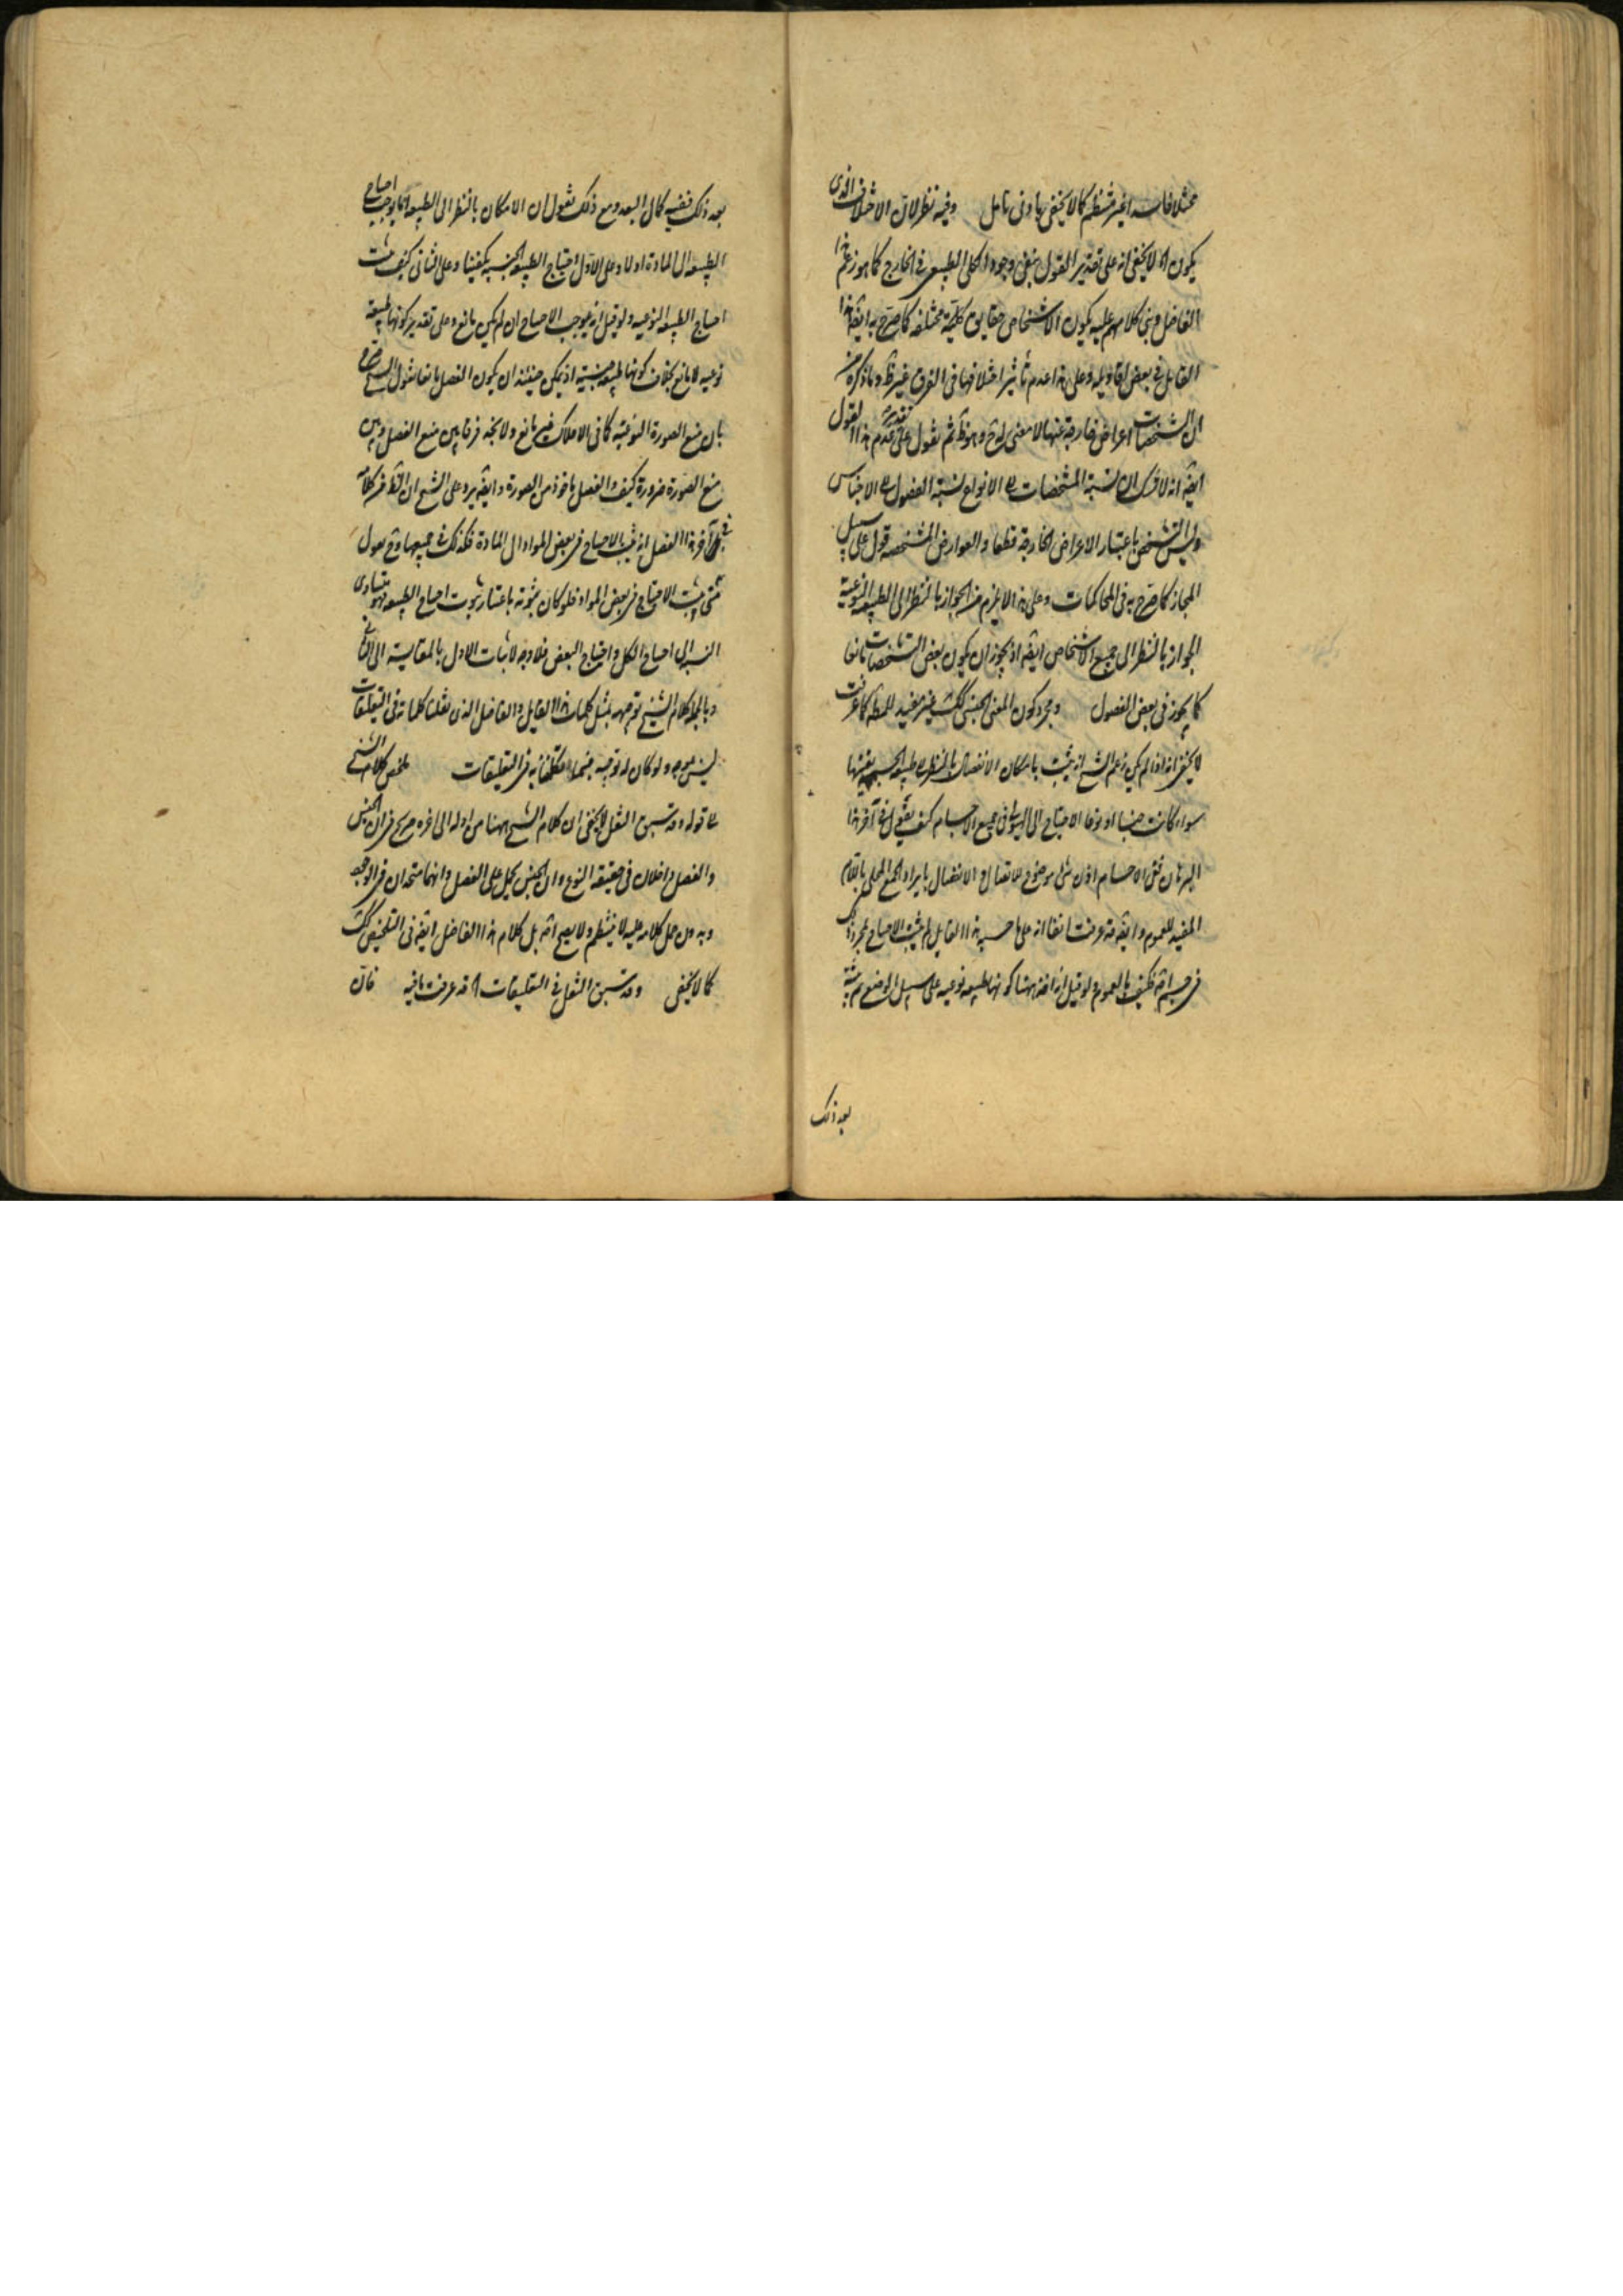 مختلا فاسدا غير منتظم كما لا يخفى بادنى تامل وفيه نظر لان الاختلاف الذى
يكون اه لا يخفى انه على تقدير القول بنفى وجود الكلى الطبيعى فى الخارج كما هو زعم هذا
الفاضل وبنى كلامهم عليه يكون الاشخاص حقايق كلية مختلفه كما صرح به ايضه هذا
القايل فى بعض اقاويله وعلى هذا عدم تاثير اختلافها فى الفرق غير ظ وما ذكره من
ان التشخصات اعراض خارجة عنها لا معنى له ح وهو ظ ثم نقول على تقدير عدم هذا القول
ايضه انه لا شك ان نسبة المشخصات الى الانواع نسبة الفصول الى الاجناس
وليس التشخص باعتبار الاعراض الخارجة قطعا والعوارض المشخصه قول على سبيل
المجاز كما صرح به فى المحاكمات وعلى هذا لا يلزم من الجواز بالنظر الى الطبيعه النوعية
الجواز بالنظر الى جميع الاشخاص ايضه اذ يجوز ان يكون بعض التشخصات مانعا
كما يجوز فى بعض الفصول ومجرد كون المعنى الجنسى كك غير مفيد للمط كما عرفت
لا يخفى انه اذا لم يكن زعم الشيخ انه يثبت بامكان الانفصال بالنظر الى طبيعه الجسميه بعينها
سواء كانت جنسا او نوعا الاحتياج الى الهيولى فى جميع الاجسام كيف يقول فى آخر هذا
البرهان فتق الاجسام اذن شئ موضوع للاتصال والانفصال بايراد الجمع المحلى باللام
المفيد للعموم وايضه قد عرفت انفا انه على ما حسبه هذا القايل لم يثبت الاحتياج بمجرد ذلك
فى جسم اصه فكيف بالعموم ولو قيل انه اخذ ههنا كونها طبيعه نوعيه على سبيل الوضع ثم يثبته
بعد ذلك
بعد ذلك ففيه كمال البعد ومع ذلك نقول ان الامكان بالنظر الى الطبيعه انما يوجب احتياج
الطبيعه الى المادة اولا وعلى الاول احتياج الطبيعه الجنسيه يكفينا وعلى الثانى كيف يثبت
احتياج الطبيعه النوعيه ولو قيل انه يوجب الاحتياج ان لم يكن مانع وعلى تقدير كونها طبيعة
نوعيه لا مانع بخلاف كونها طبيعه جنسية اذ يمكن حينئذ ان يكون الفصل مانعا نقول الشيخ صرح
بان منع الصورة النوعية كما فى الافلاك غير مانع ولا نجد فرقا بين منع الفصل وبين
منع الصورة ضرورة كيف والفصل ماخوذ من الصورة وايضه يرد على الشيخ ان الظ من كلامه
فى آخر هذا الفصل انه يثبت الاحتياج فى بعض المواد الى المادة فكذلك فى جميعها وح نقول
متى يثبت الاحتياج فى بعض المواد فلو كان ثبوته باعتبار ثبوت احتياج الطبيعه فهو متساوى
النسبه الى احتياج الكل واحتياج البعض فلا وجه لاثبات الاول بالمقايسة الى الثانى
وبالجمله كلام الشيخ توجيهه بمثل كلمات هذا القايل والفاضل الذى نقلنا كلماته فى التعليقات
ليس بموجه ولو كان له توجيه فبما تكلفنا به فى التعليقات ملخص كلام الشيخ
الى قوله وقد سبق النقل لا يخفى ان كلام الشيخ ههنا من اوله الى اخره صريح فى ان الجنس
والفصل داخلان فى حقيقه النوع وان الجنس يحمل على الفصل وانهما متحدان فى الوجود
وبدون حمل كلامه عليه لا ينتظم ولا يصح اصه بل كلام هذا الفاضل ايضه فى التلخيص كك
كما لا يخفى وقد سبق النقل فى التعليقات اه قد عرفت ما فيه فان